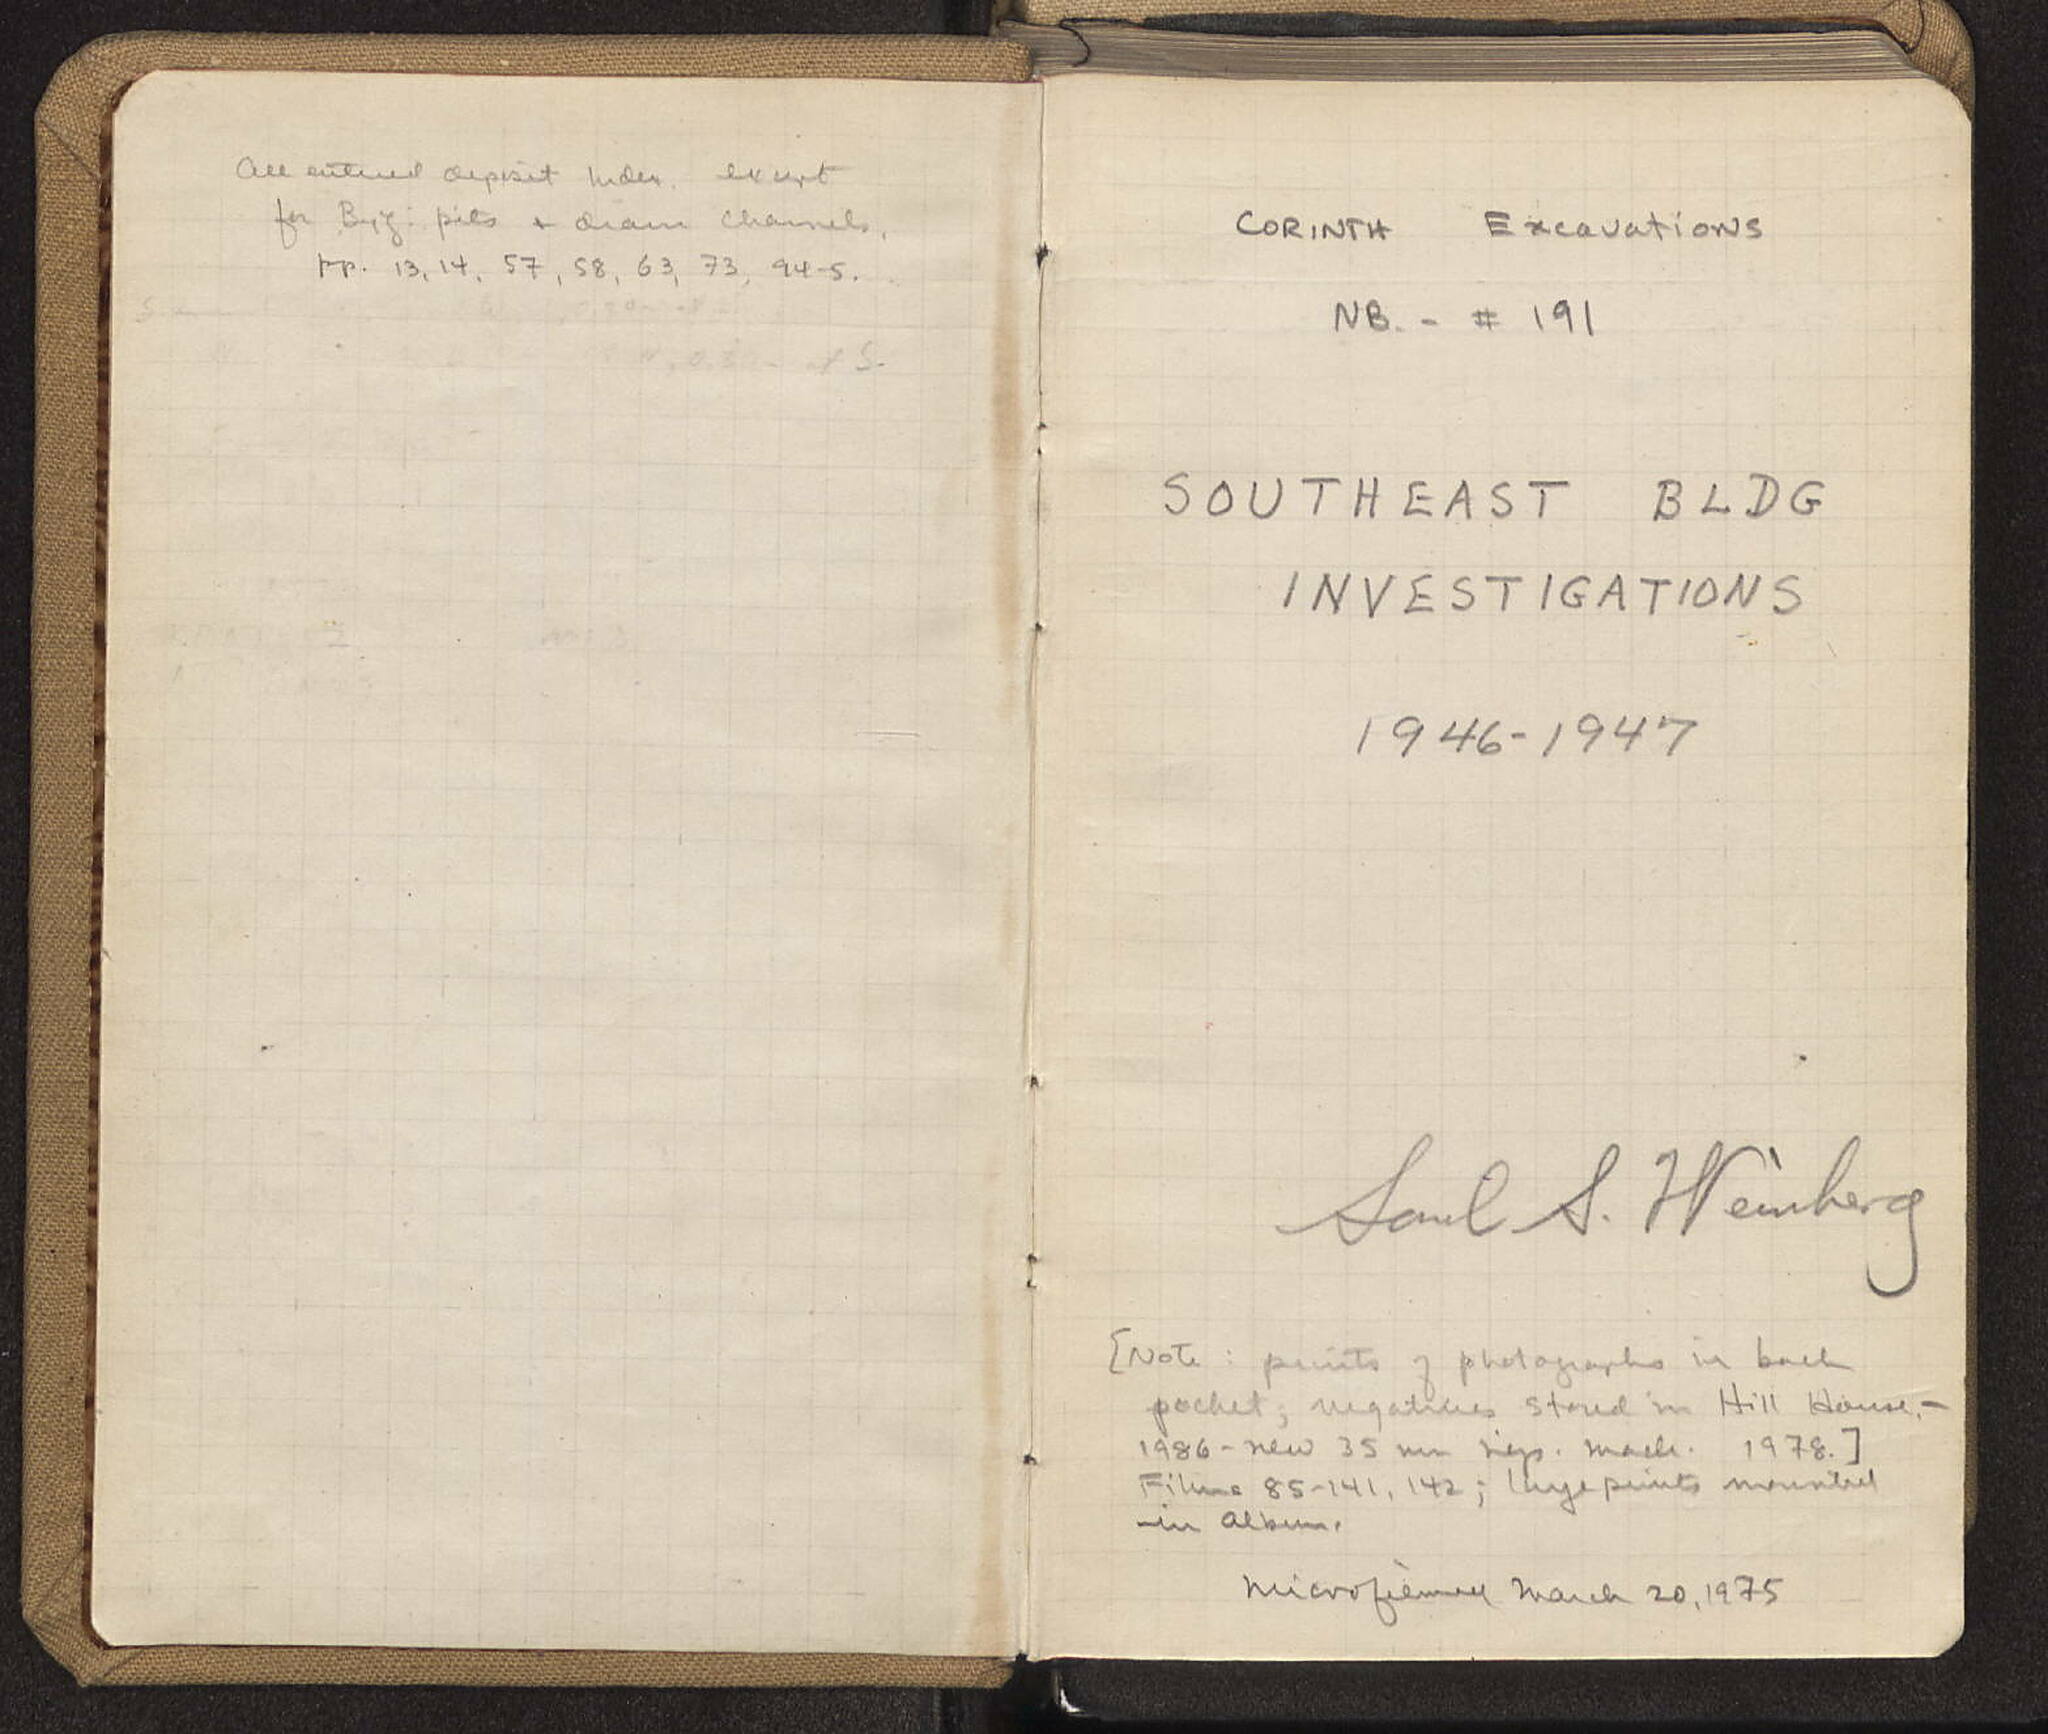 All entered deposit index. except
for Byz. pits + drain channels,
pp. 13, 14, 57, 58, 63, 73, 94-5.
CORINTH Excavations
NB. - # 191
SOUTHEAST BLDG
INVESTIGATIONS
1946-1947
Saul S. Weinberg
[Note: prints of photographs in back
pocket; negatives stored in Hill House,-
1986 - new 35 mm negs. made. 1978.]
Films 85-141, 142; large prints mounted
in album.
Microfilmed March 20, 1975